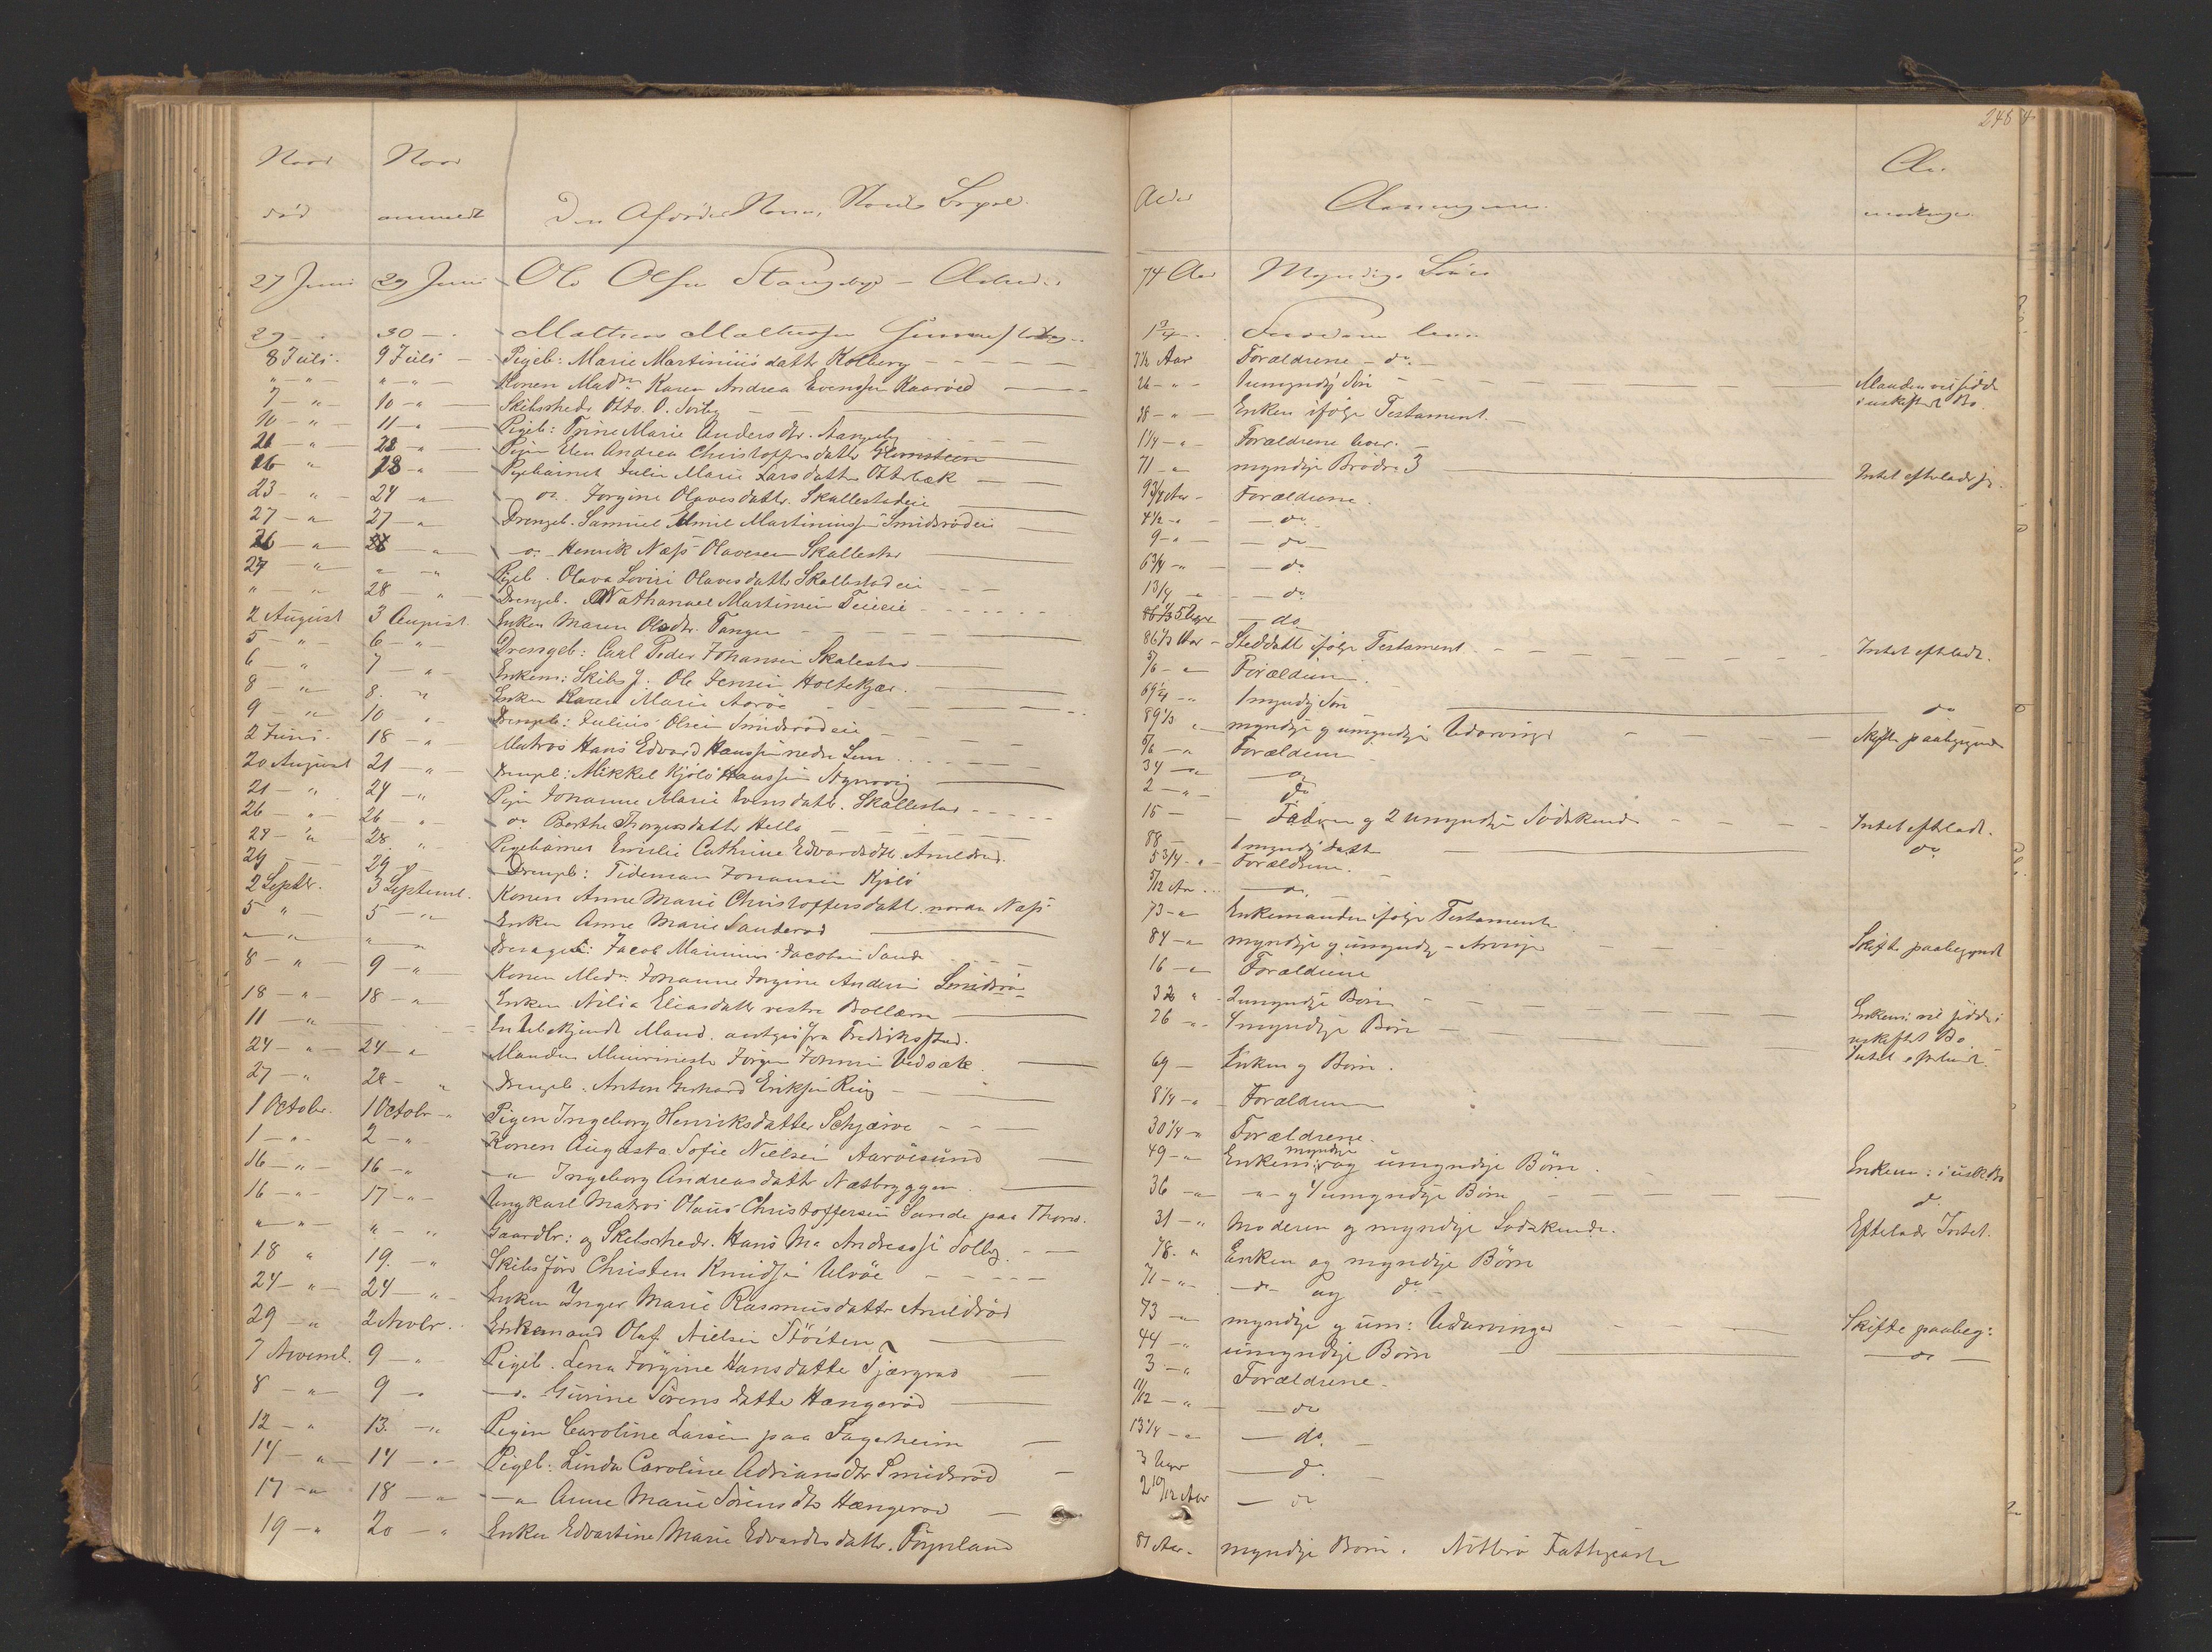 248
Naar død
Naar anmeldt
Den Afdødes Navn, Stand, Bopæl.
Alder
Arvingerne.
An-
mærkninger
27 Juni 29 Juni Ole Olsen Stangeby - 74 Aar Myndige
29 - 30 - Mathias Mathiassen 1 3/4
8 Juli. 9 Juli - Pigeb: Marie Martiniusdattr Kolberg - 7½ Aar Forældrene - do.
" - " - " - " - Konen Madm Karen Andrea Evensen Kaarød 26 - " - 1 umyndig Søn - Manden vil sidde
i uskiftet Bo.
7 - " - 10 - " - Skibsrheder Otto. O. Solby 38 - " - Enken ifølge Testament.
10 - " - 11 - " - Pigeb: Trine Marie Andersdtr. Stangeby 1¼ - " - Forældrene lever.
26 - " 28 - " - Pigen Elen Andrea Christoffersdattr Glomsteen 71 - " myndige Brødre 3 Intet efterladt
26 - " 28 - " - Pigebarnet Julie Marie Larsdatter Otterbæk 9¾ Aar - Forældrene.
23 - " - 24 - " - do. Jorgine Olavesdattr. Skallestadeie 4½ - " - do.
27 - " 27 - " Drengeb. Samuel Emil Martiniussen Smidsrødeie 9 - " - do
26 - " 28 - " - do. Henrik Næss Olavesen Skallestad 6¾ - " - do.
27 - " " - " Pigeb. Olava Lovise Olavesdattr Skallestadeie 1¾ - " - do.
" - " 28 - " Drengeb. Nathanael Martinsen Teieeie - do
2 August 3 August Enken Maren Olsdtr. Tangen 86⅓ Aar - Steddattr ifølge Testament. Intet efterladt.
5 - " 6 - " Drengeb: Carl Peder Johansen Skalestad 5/6 - " Forældrene.
6 - " 7 - " Enkem: Skibsf. Ole Jensen Holtekjær. 69¼ - " 1 myndig Søn do
8 - " 8. " Enken Karen Marie Aarøe 89⅓ " myndige og umyndige Udarvinger Skifte paabegyndt
9 - " 10 - " Drengeb: Julius Olsen Smidsrødeie 5/6 - " Forældrene
2 Juni. 18 - " Matros Hans Edvard Hanssen nedre Sem 34 - " do
20 August 21 - " Drengeb: Mikkel Kjøl Hanssen 2 - " - do
21 - " 24 - " Pigen Johanne Marie Evensdattr. Skallestad 15 - Faderen og 2 umyndige Sødskende Intet efterladt.
26 - " 26 - " do Berthe Thorgersdattr Hella 88 - 1 myndig Datter do
28 - " 28. " Pigebarnet Emilie Cathrine Edvardsdtr Arnildrød. 5¾ - " - Forældrene.
29 - 29 - Drengeb: Tideman Johansen Kjølø 5/12 Aar do.
2 Septbr. 3 Septembr. Konen Anne Marie Christoffersdattr. nordre Næss 73 - " Enkemanden ifølge Testamente
5 " - 5 - " Enken Anne Marie Sanderød 84 - " myndige og umyndige Arvinger Skifte paabegyndt
" - " " - " Drengeb: Jacob Jacobsen Sande 16 - " Forældrene
8 - " - 9 - " Konen Madm Johanne Jorgine Andersen Smidsrød 32 " - 2 umyndige Børn Enkem: vil sidde i
uskiftet Bo
18 - " - 18 - " Enken Nilia Eliasdattr vestre Bollæren 76 - " 4 myndige Børn Intet efterladt.
11 - " En Ubekjendt Mand. fra Fredriksstad.
24 - " - 24 - " Manden Jørgen Johnsen Vedsæte. 69 - Enken og Børn.
27 - " 28 - " Drengeb. Anton Gerhard Eriksen 8¼ - " - Forældrene
1 October. 1 Octobr - Pigen Ingeborg Henriksdatter Schjærve 30¼ - " Forældrene.
1 - " - 2 - " Konen Augasta Sofie Nielsen Aarøisund 49 - " Enkem: myndige og umyndige Børn. Enkem: i uskBo
16 - " - 16 - " - " Ingeborg Andreasdattr Næsbryggen. 36 - " - " - og 4 umyndige Børn do.
16 - " - 17 - " Ungkarl Matros Olaus Christoffersen Sande paa 31 - " Moderen og myndige Sødskende. Efterlader Intet.
" - " " - " Gaardbr: og Skibsrhedr. Hans Andreassen Solby 78. " Enken og myndige Børn
18 " 19. - " Skibsfører Christen Knudsen Ulvøe 71 - " do og do
24 - " 24 - " Enken Inger Marie Rasmusdattr Arnildrød 73 - " myndige og um: Udarvinger Skifte paabeg:
29 - " 2 Novbr. Enkemand Olaf Nielsen Stöiten 44 - " umyndige Børn do
7 Novembr. 9 - " Pigeb. Lena Jörgine Hansdatter 3 - " Forældrene.
8 - " 9 - " - do Gurine Sørensdatter Hængerød 11/12 - " - do
12 - " 13. - " Pigen Caroline Larsen paa Fagerheim 13¼ - " - do.
14 - " - 14 - " - Pigeb: Linda Caroline Adriansdtr Smidsrød 3 Uger - do.
17 - " 18 - " - " Anne Marie Sørensdtr Hængerød 2 10/12 Aar - do
19 - " 20 - " Enken Edvartine Marie Edvardsdattr. Föynland 81 Aar. myndige Børn. Nötterö Fattigkasse